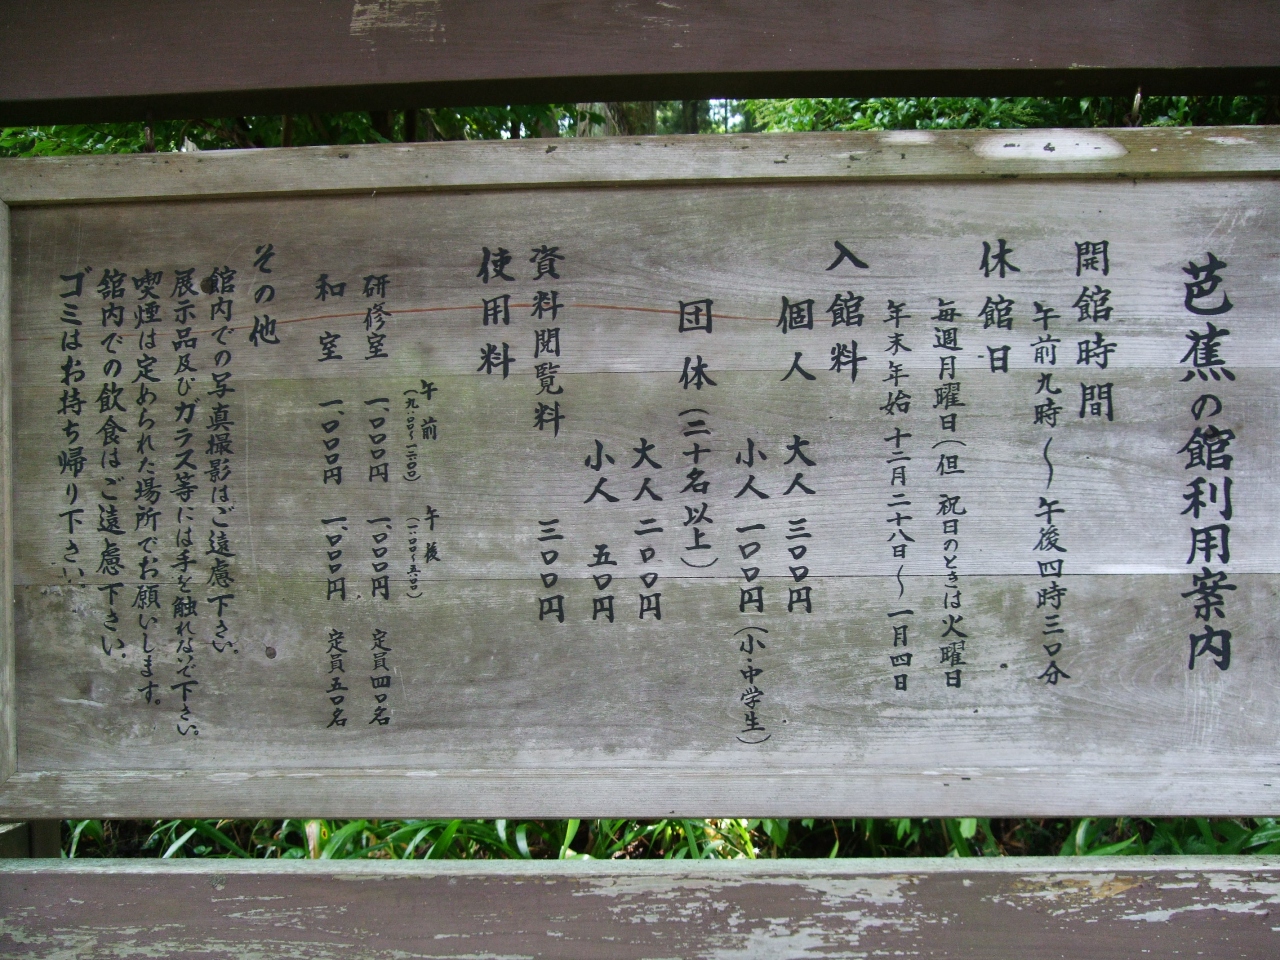 芭蕉の館利用案内
開館時間
午前九時〜午後四時三〇分
休館日
毎週月曜日(但 祝日のときは火曜日
年末年始 十二月二十八日〜一月四日
入館料
個人 大人 三〇〇円
小人 一〇〇円(小・中学生)
団体(二十名以上)
大人 二〇〇円
小人 五〇円
資料閲覧料 三〇〇円
使用料
午前 午後
(九:〇〇〜一二:〇〇) (一:〇〇〜五:〇〇)
研修室 一、〇〇〇円 一、〇〇〇円 定員四〇名
和室 一、〇〇〇円 一、〇〇〇円 定員五〇名
その他
館内での写真撮影はご遠慮下さい。
展示品及びガラス等には手を触れないで下さい。
喫煙は定められた場所でお願いします。
舘内での飲食はご遠慮下さい。
ゴミはお持ち帰り下さい。